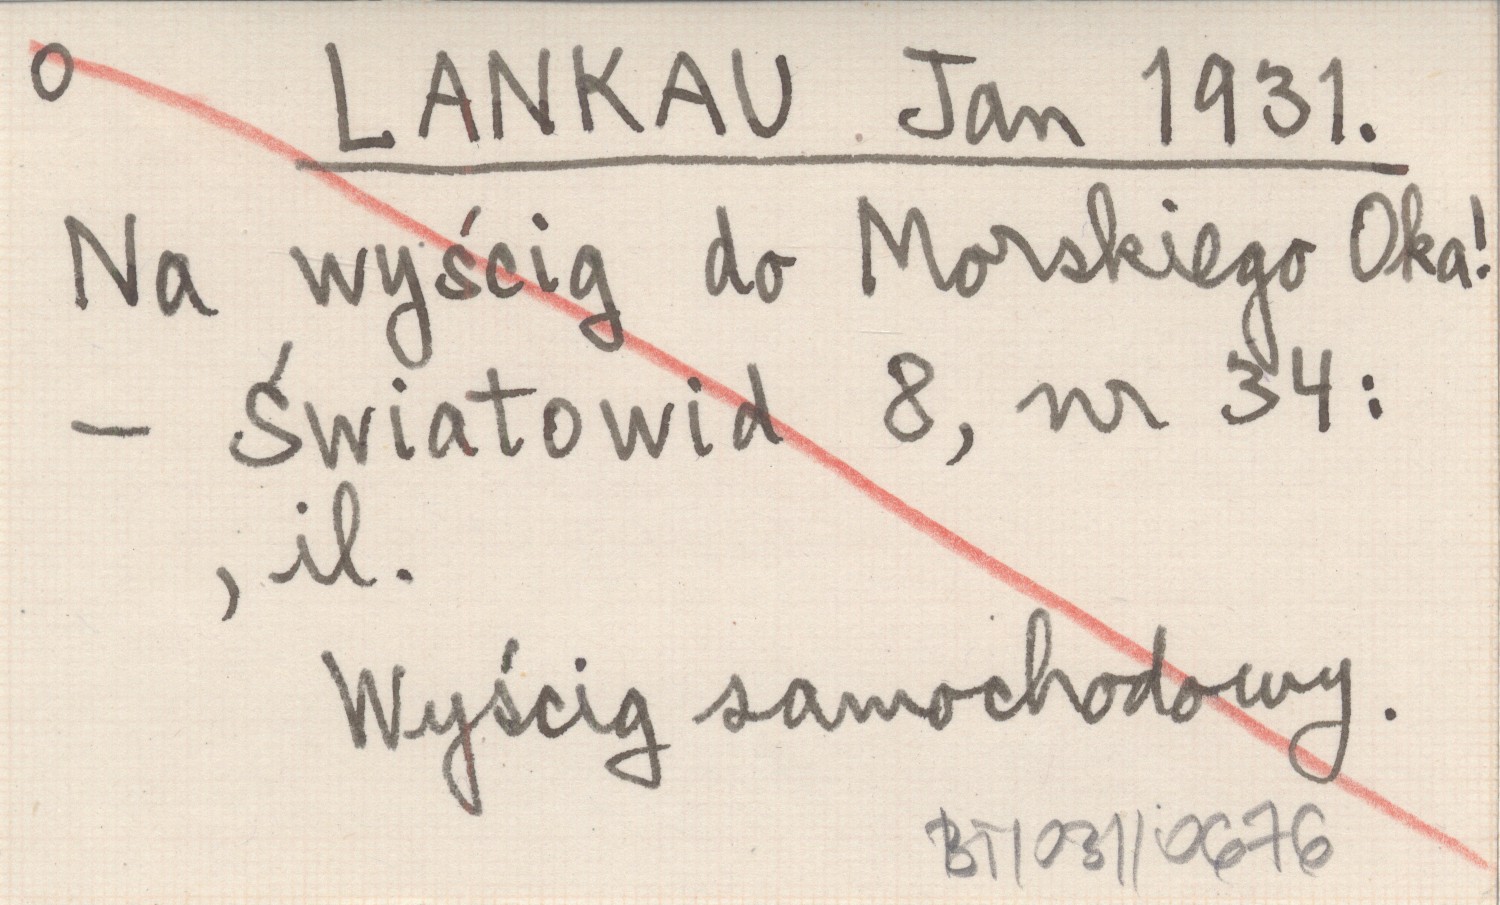 o LANKAU Jan 1931.
Na wyścig do Morskiego Oka!
- Światowid 8, nr 34:
, il.
Wyścig samochodowy.
BT/031/0676